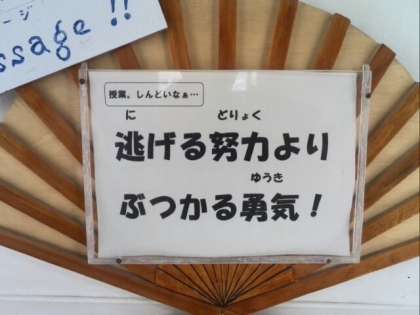 ージ
ssage !!
授業。しんどいなぁ…
に どりょく
逃げる努力より
ゆうき
ぶつかる勇気！